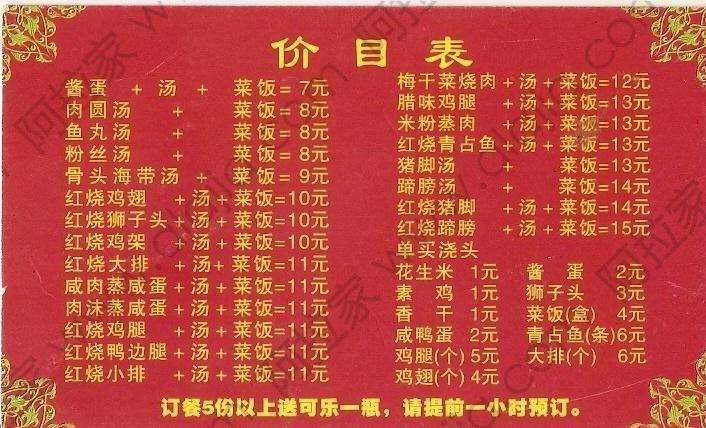 价目表
酱蛋 + 汤 + 菜饭=7元
肉圆汤 + 菜饭=8元
鱼丸汤 + 菜饭=8元
粉丝汤 + 菜饭=8元
骨头海带汤 + 菜饭=9元
红烧鸡翅 +汤+菜饭=10元
红烧狮子头+汤+菜饭=10元
红烧鸡架 +汤+菜饭=10元
红烧大排 +汤+菜饭=11元
咸肉蒸咸蛋+汤+菜饭=11元
肉沫蒸咸蛋+汤+菜饭=11元
红烧鸡腿 +汤+菜饭=11元
红烧鸭边腿+汤+菜饭=11元
红烧小排 +汤+菜饭=11元
梅干菜烧肉+汤+菜饭=12元
腊味鸡腿 +汤+菜饭=13元
米粉蒸肉 +汤+菜饭=13元
红烧青占鱼+汤+菜饭=13元
猪脚汤 + 菜饭=13元
蹄膀汤 + 菜饭=14元
红烧猪脚 +汤+菜饭=14元
红烧蹄膀 +汤+菜饭=15元
单买浇头
花生米 1元 酱蛋 2元
素鸡 1元 狮子头 3元
香干 1元 菜饭(盒) 4元
咸鸭蛋 2元 青占鱼(条)6元
鸡腿(个) 5元 大排(个) 6元
鸡翅(个) 4元
订餐5份以上送可乐一瓶，请提前一小时预订。